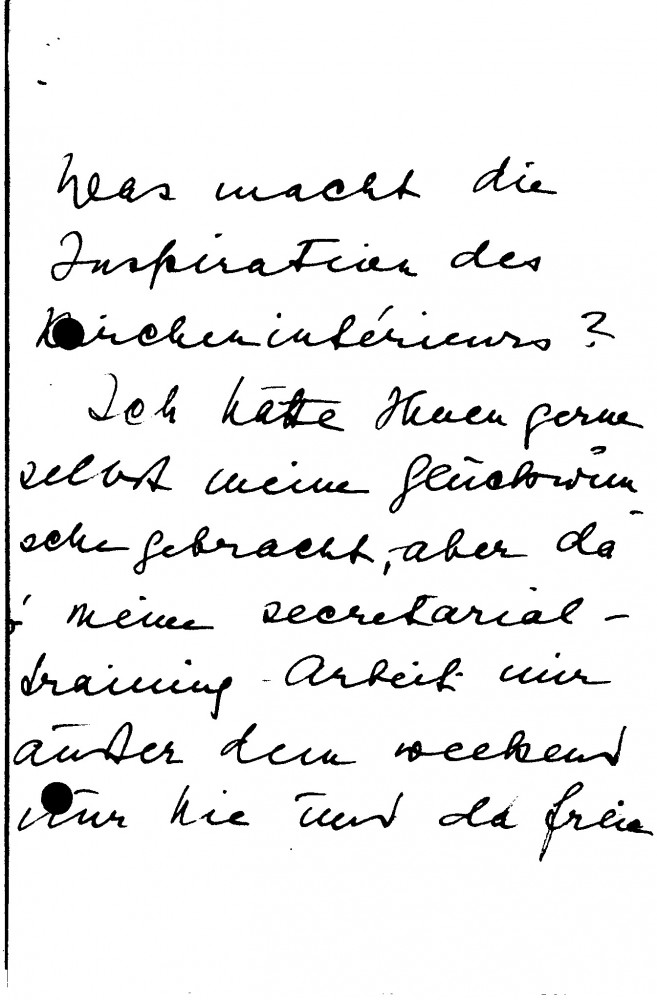 Was macht die
Inspiration des
Kircheninterieurs?
Ich hätte Ihnen gerne
selbst meine Glückwün
sche gebracht, aber da
meine secretarial-
training-Arbeit mir
außer dem weekend
nur hie und da freie